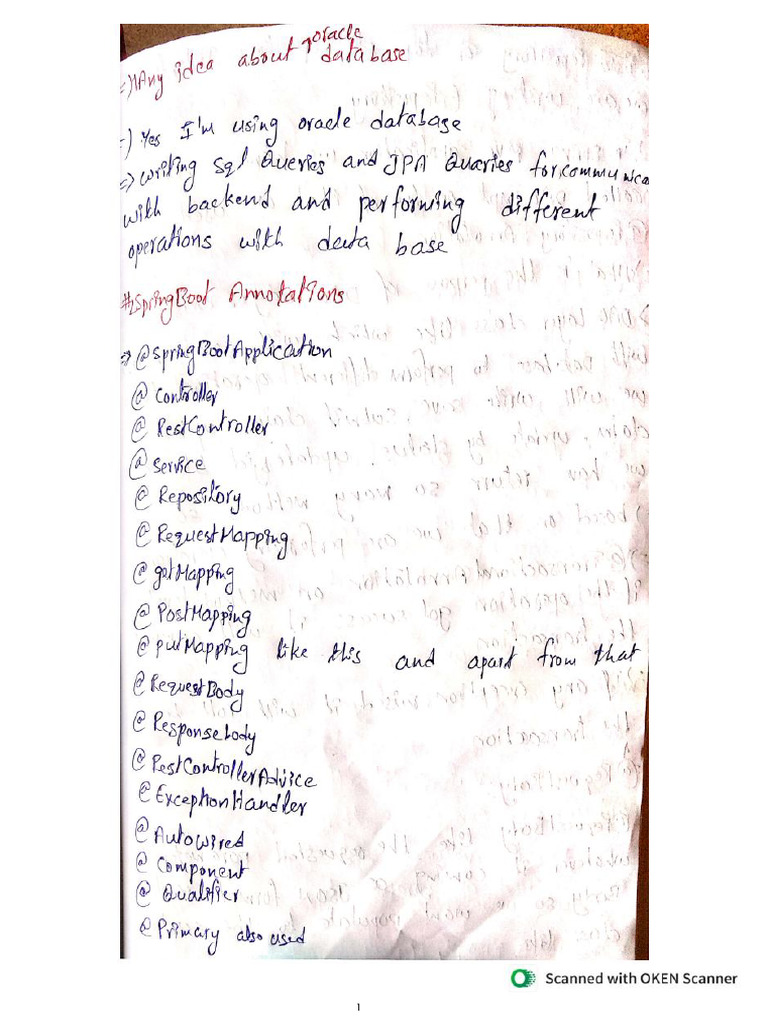 =) Any idea about oracle database
=) Yes I'm using oracle database
=) writing Sql Queries and JPA Quaries for communica
with backend and performing different
operations with data base
# SpringBoot Annotations
=) @SpringBootApplication
@ Controller
@ RestController
@ Service
@ Repository
@ RequestMapping
@ getMapping
@ PostMapping
@ putMapping like this and apart from that
@ RequestBody
@ Responsebody
@ RestControllerAdvice
@ ExceptionHandler
@ Autowired
@ Component
@ Qualifier
@ Primary also used
Scanned with OKEN Scanner
1